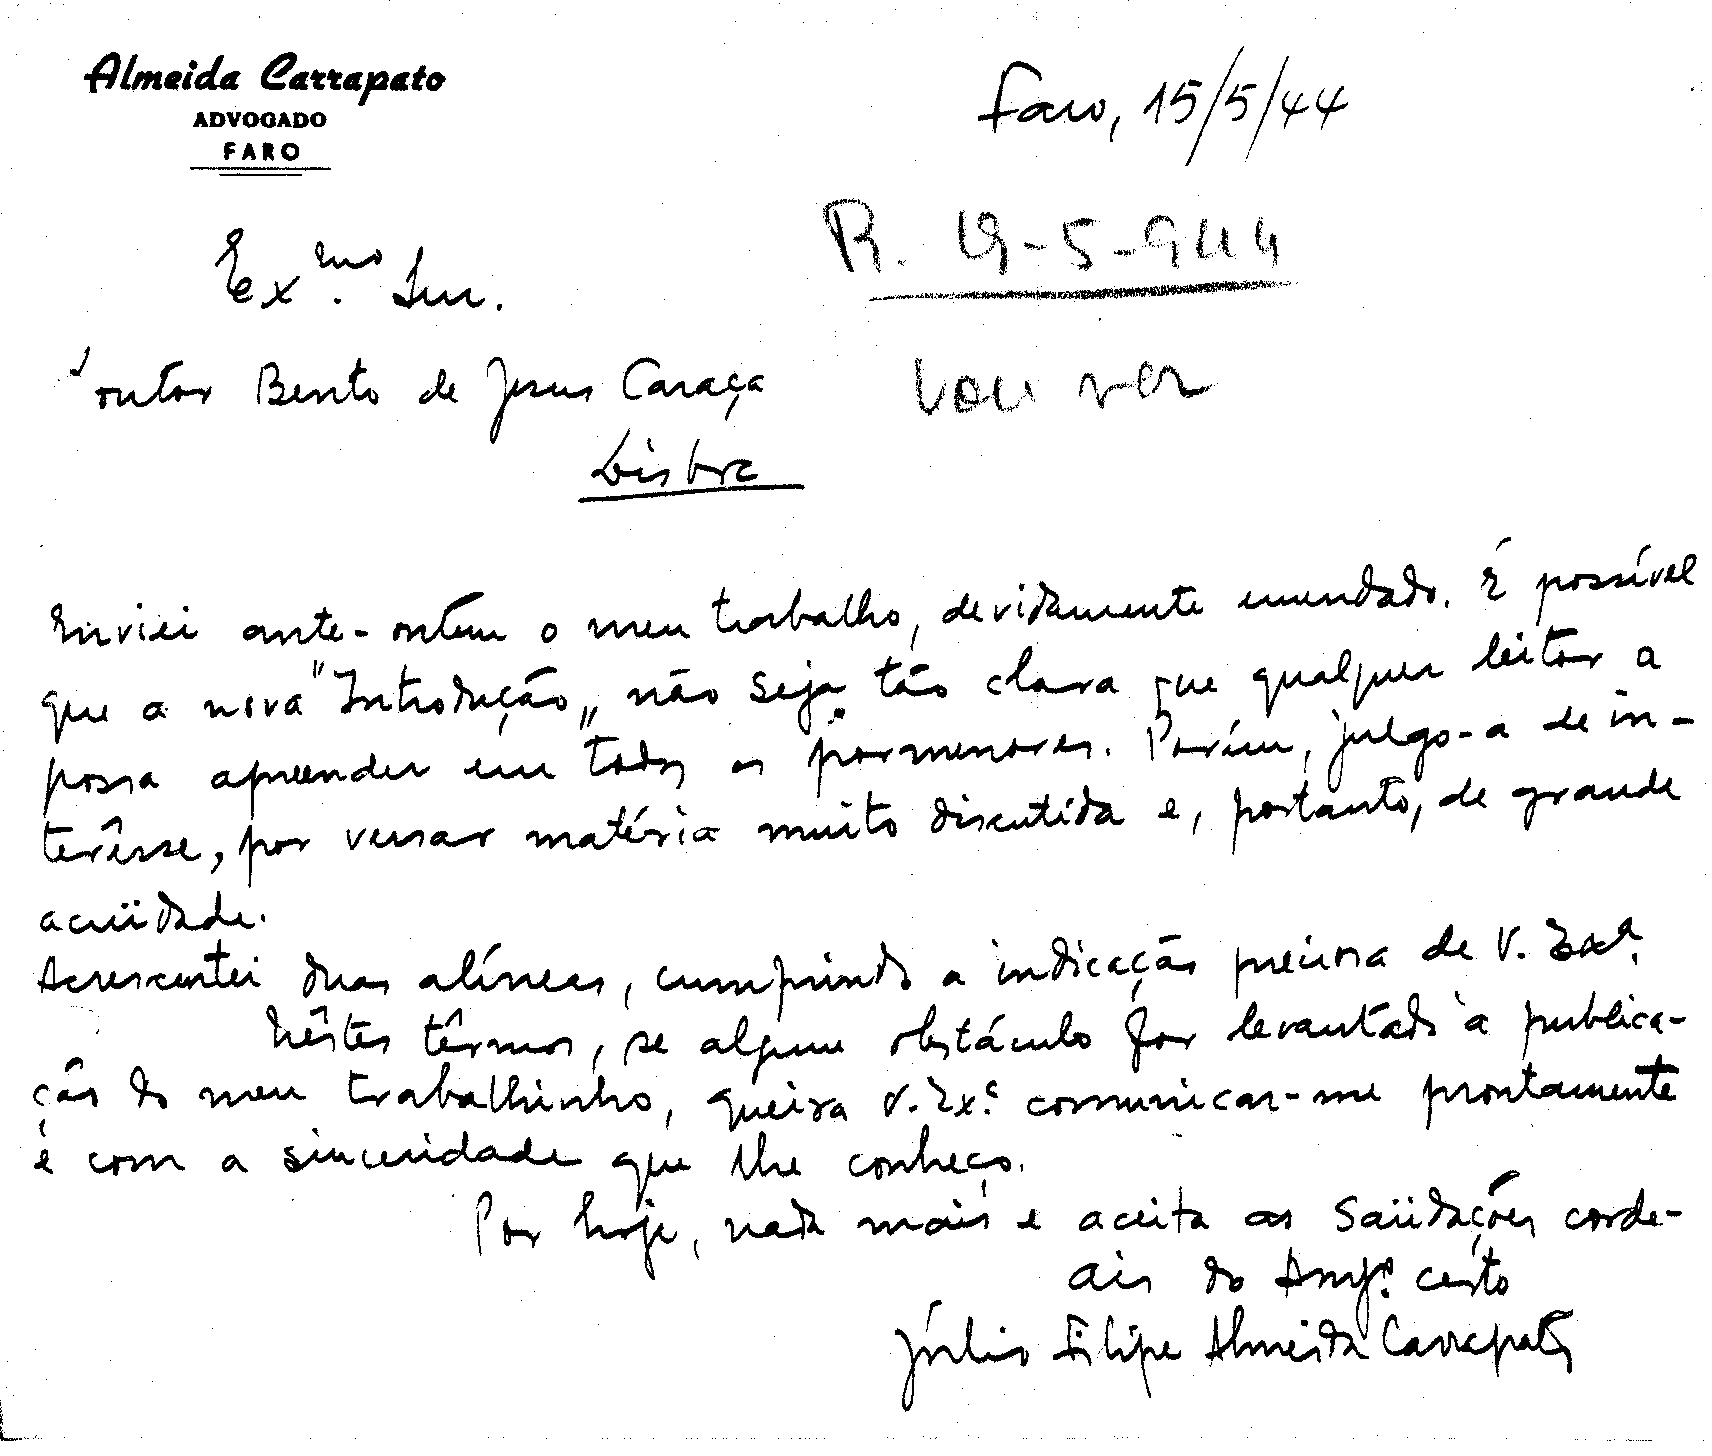 Almeida Carrapato
ADVOGADO
FARO
Faro, 15/5/44
R. 19-5-944
Ex.mo Snr.
outor Bento de Jesus Caraça
vou ver
Lisboa
Enviei ante-ontem o meu trabalho, devidamente emendado. É possível
que a nova "Introdução" não seja tão clara que qualquer leitor a
possa apreender em todos os pormenores. Porém, julgo-a de in-
terêsse, por versar matéria muito discutida e, portanto, de grande
acüidade.
Acrescentei duas alíneas, cumprindo a indicação preciosa de V. Exª.
Nêstes têrmos, se algum obstáculo fôr levantado à publica-
ção do meu trabalhinho, queira V. Ex.ª comunicar-me prontamente
e com a sinceridade que lhe conheço.
Por hoje, nada mais e aceita as saüdações corde-
ais do Amg.º certo
Júlio Filipe Almeida Carrapato